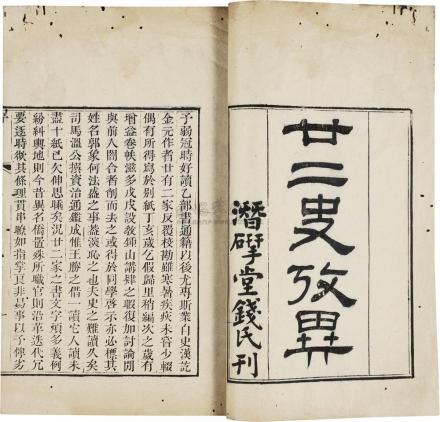 廿二史攷異
潛揅堂錢氏刊
予弱冠時好讀乙部書通籍以後尤專斯業自史漢訖
金元作者廿有二家反覆校勘雖寒暑疾疢未嘗少輟
偶有所得寫於別紙丁亥歲乞假歸里稍編次之歲有
增益卷帙滋多戊戌設教鍾山講肄之暇復加討論間
與前人闇合者削而去之或得於同學啓示亦必標其
姓名郭象何法盛之事葢深恥之也夫史之難讀久矣
司馬溫公撰資治通鑑成惟王勝之借一讀它人讀未
盡十紙已欠伸思睡矣況廿二家之書文字煩多義例
紛糾輿地則今昔異名僑置殊所職官則沿革迭代冗
要逐時欲其條理貫串瞭如指掌良非易事以予儜劣